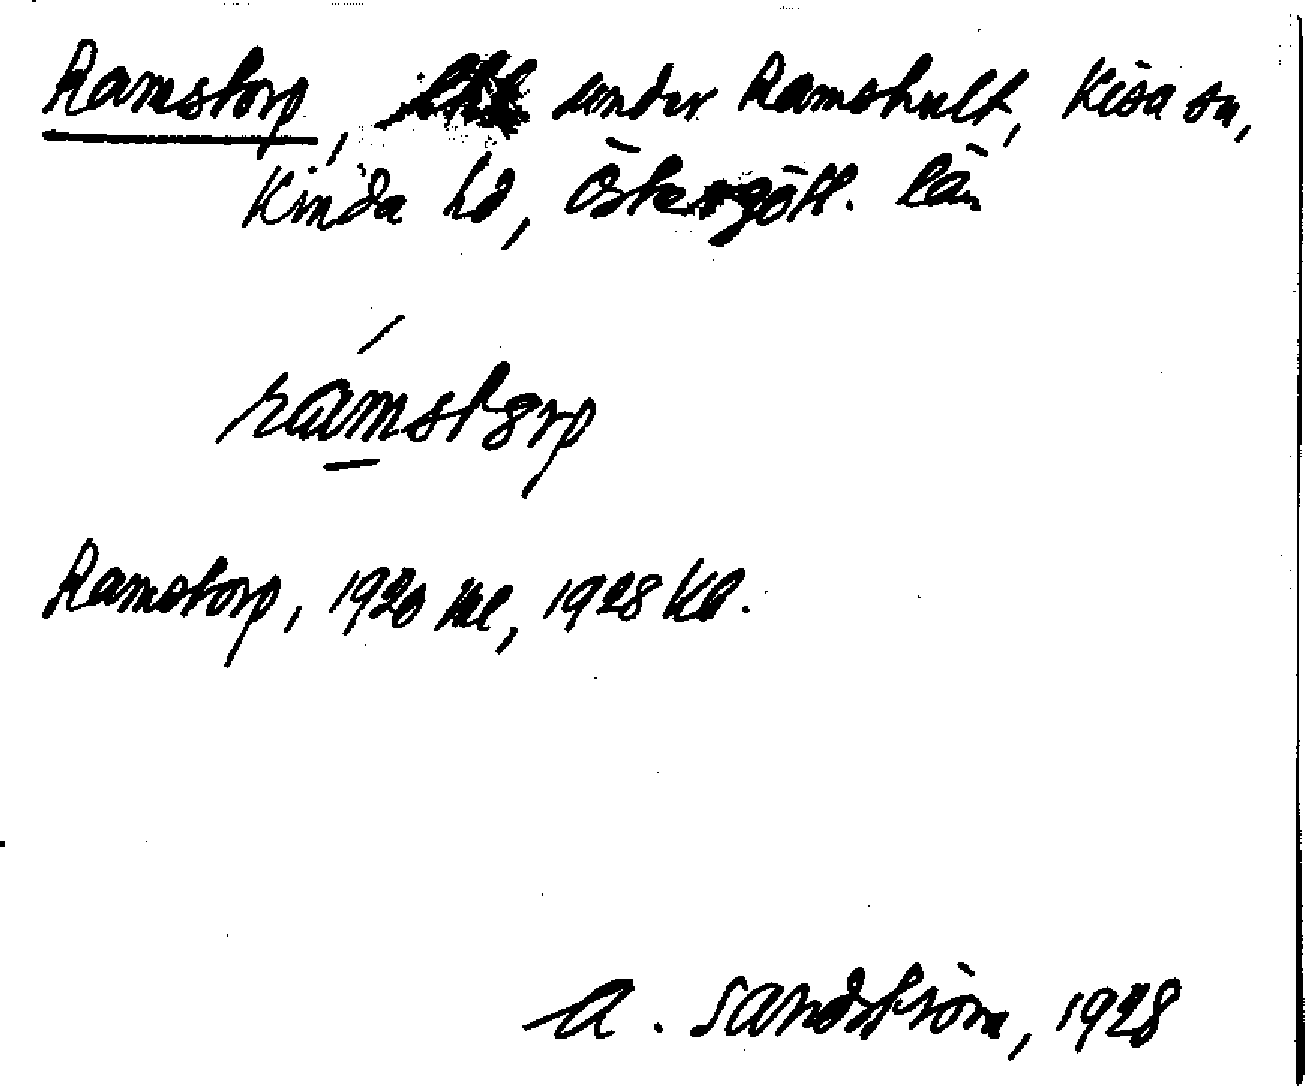 Ramstorp, under Ramshult, Kisa sn,
Kinda hd, Östergötl. län
ramstorp
Ramstorp, 1920 1928 Kb.
A. Sandström, 1928